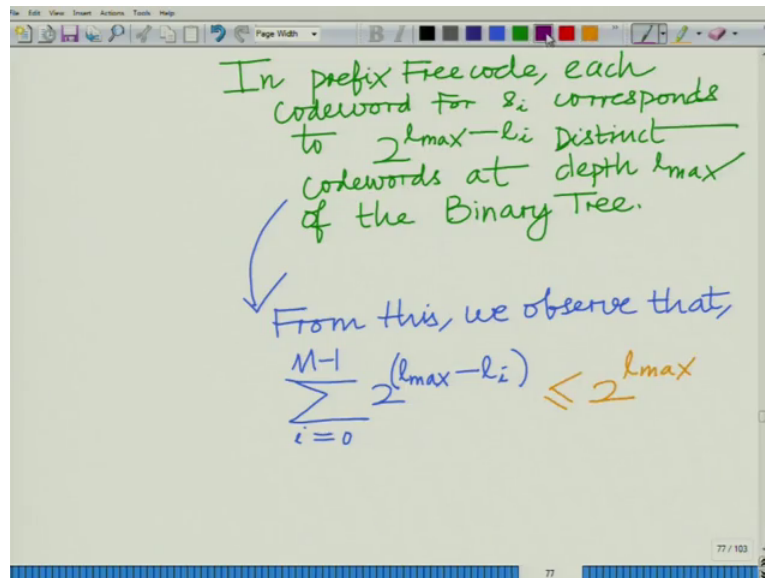 File Edit View Insert Actions Tools Help
Page Width
B I
In prefix Free code, each
codeword For s_i corresponds
to 2^{l_max - l_i} Distinct
codewords at depth l_max
of the Binary Tree.
From this, we observe that,
\sum_{i=0}^{M-1} 2^{(l_max - l_i)} ≤ 2^{l_max}
77 / 103
77